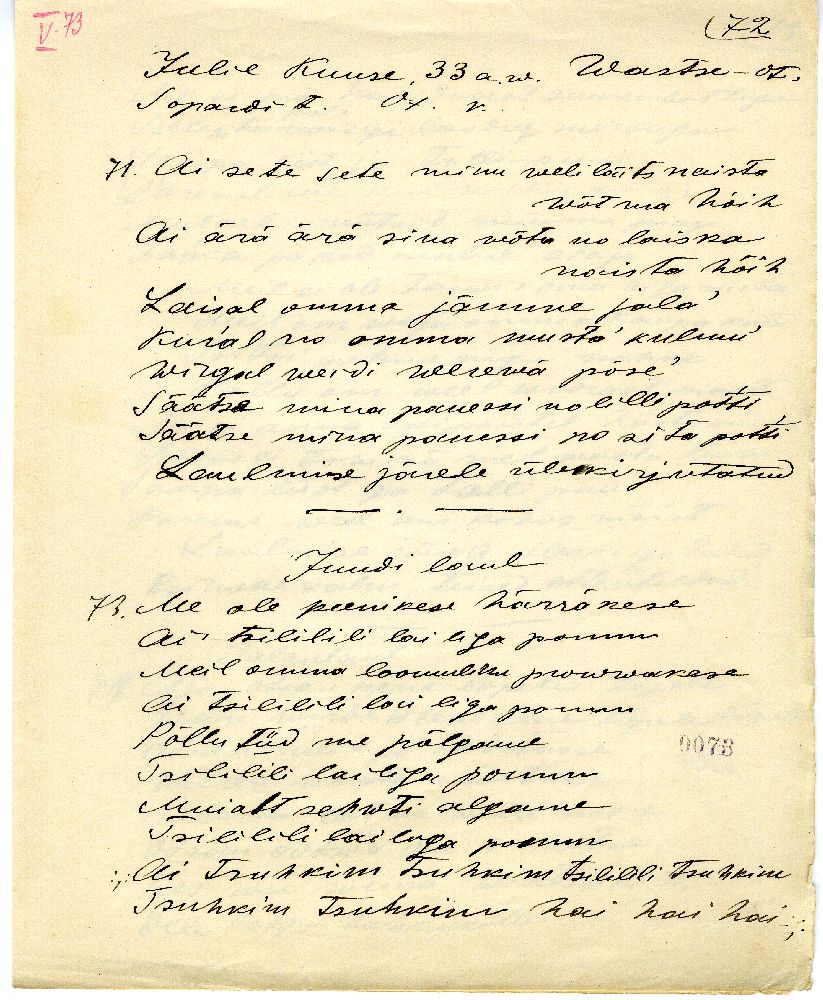 V. 73
(72
Julie Kuuse, 33 a.w. Wastse-Ot.
Sopardi t. Ot. v.
71. Ai sete sete minu weli läits naista
wõtma hõih
Ai ärä ärä sina wõtu no laiska
naista hõih
Laisal omma jämme jala'
Kur'al no omma musta' kulmu'
Wirgal weidi werewä põse'
Säätse mina panessi no lilli potti
Säätse mina panessi no sita potti
Laulmise järele üleskirjutatud
Juudi laul
73. Me ole peenikese härräkese
Ai tsililili lai liga pomm
Meil omma loomuliku prouwakese
Ai tsililili lai liga pomm
Põllu tüd me põlgame
0073
Tsililili lai liga pomm
Muialt sehwti algame
Tsililili lai liga pomm
:,: Ai Tsuhkim Tsuhkim tsililili Tsuhkim
Tsuhkim Tsuhkim hai hai hai :,: